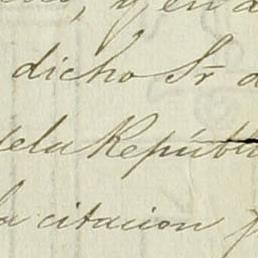 y en
dicho Sr
dela Repúbli
la citacion